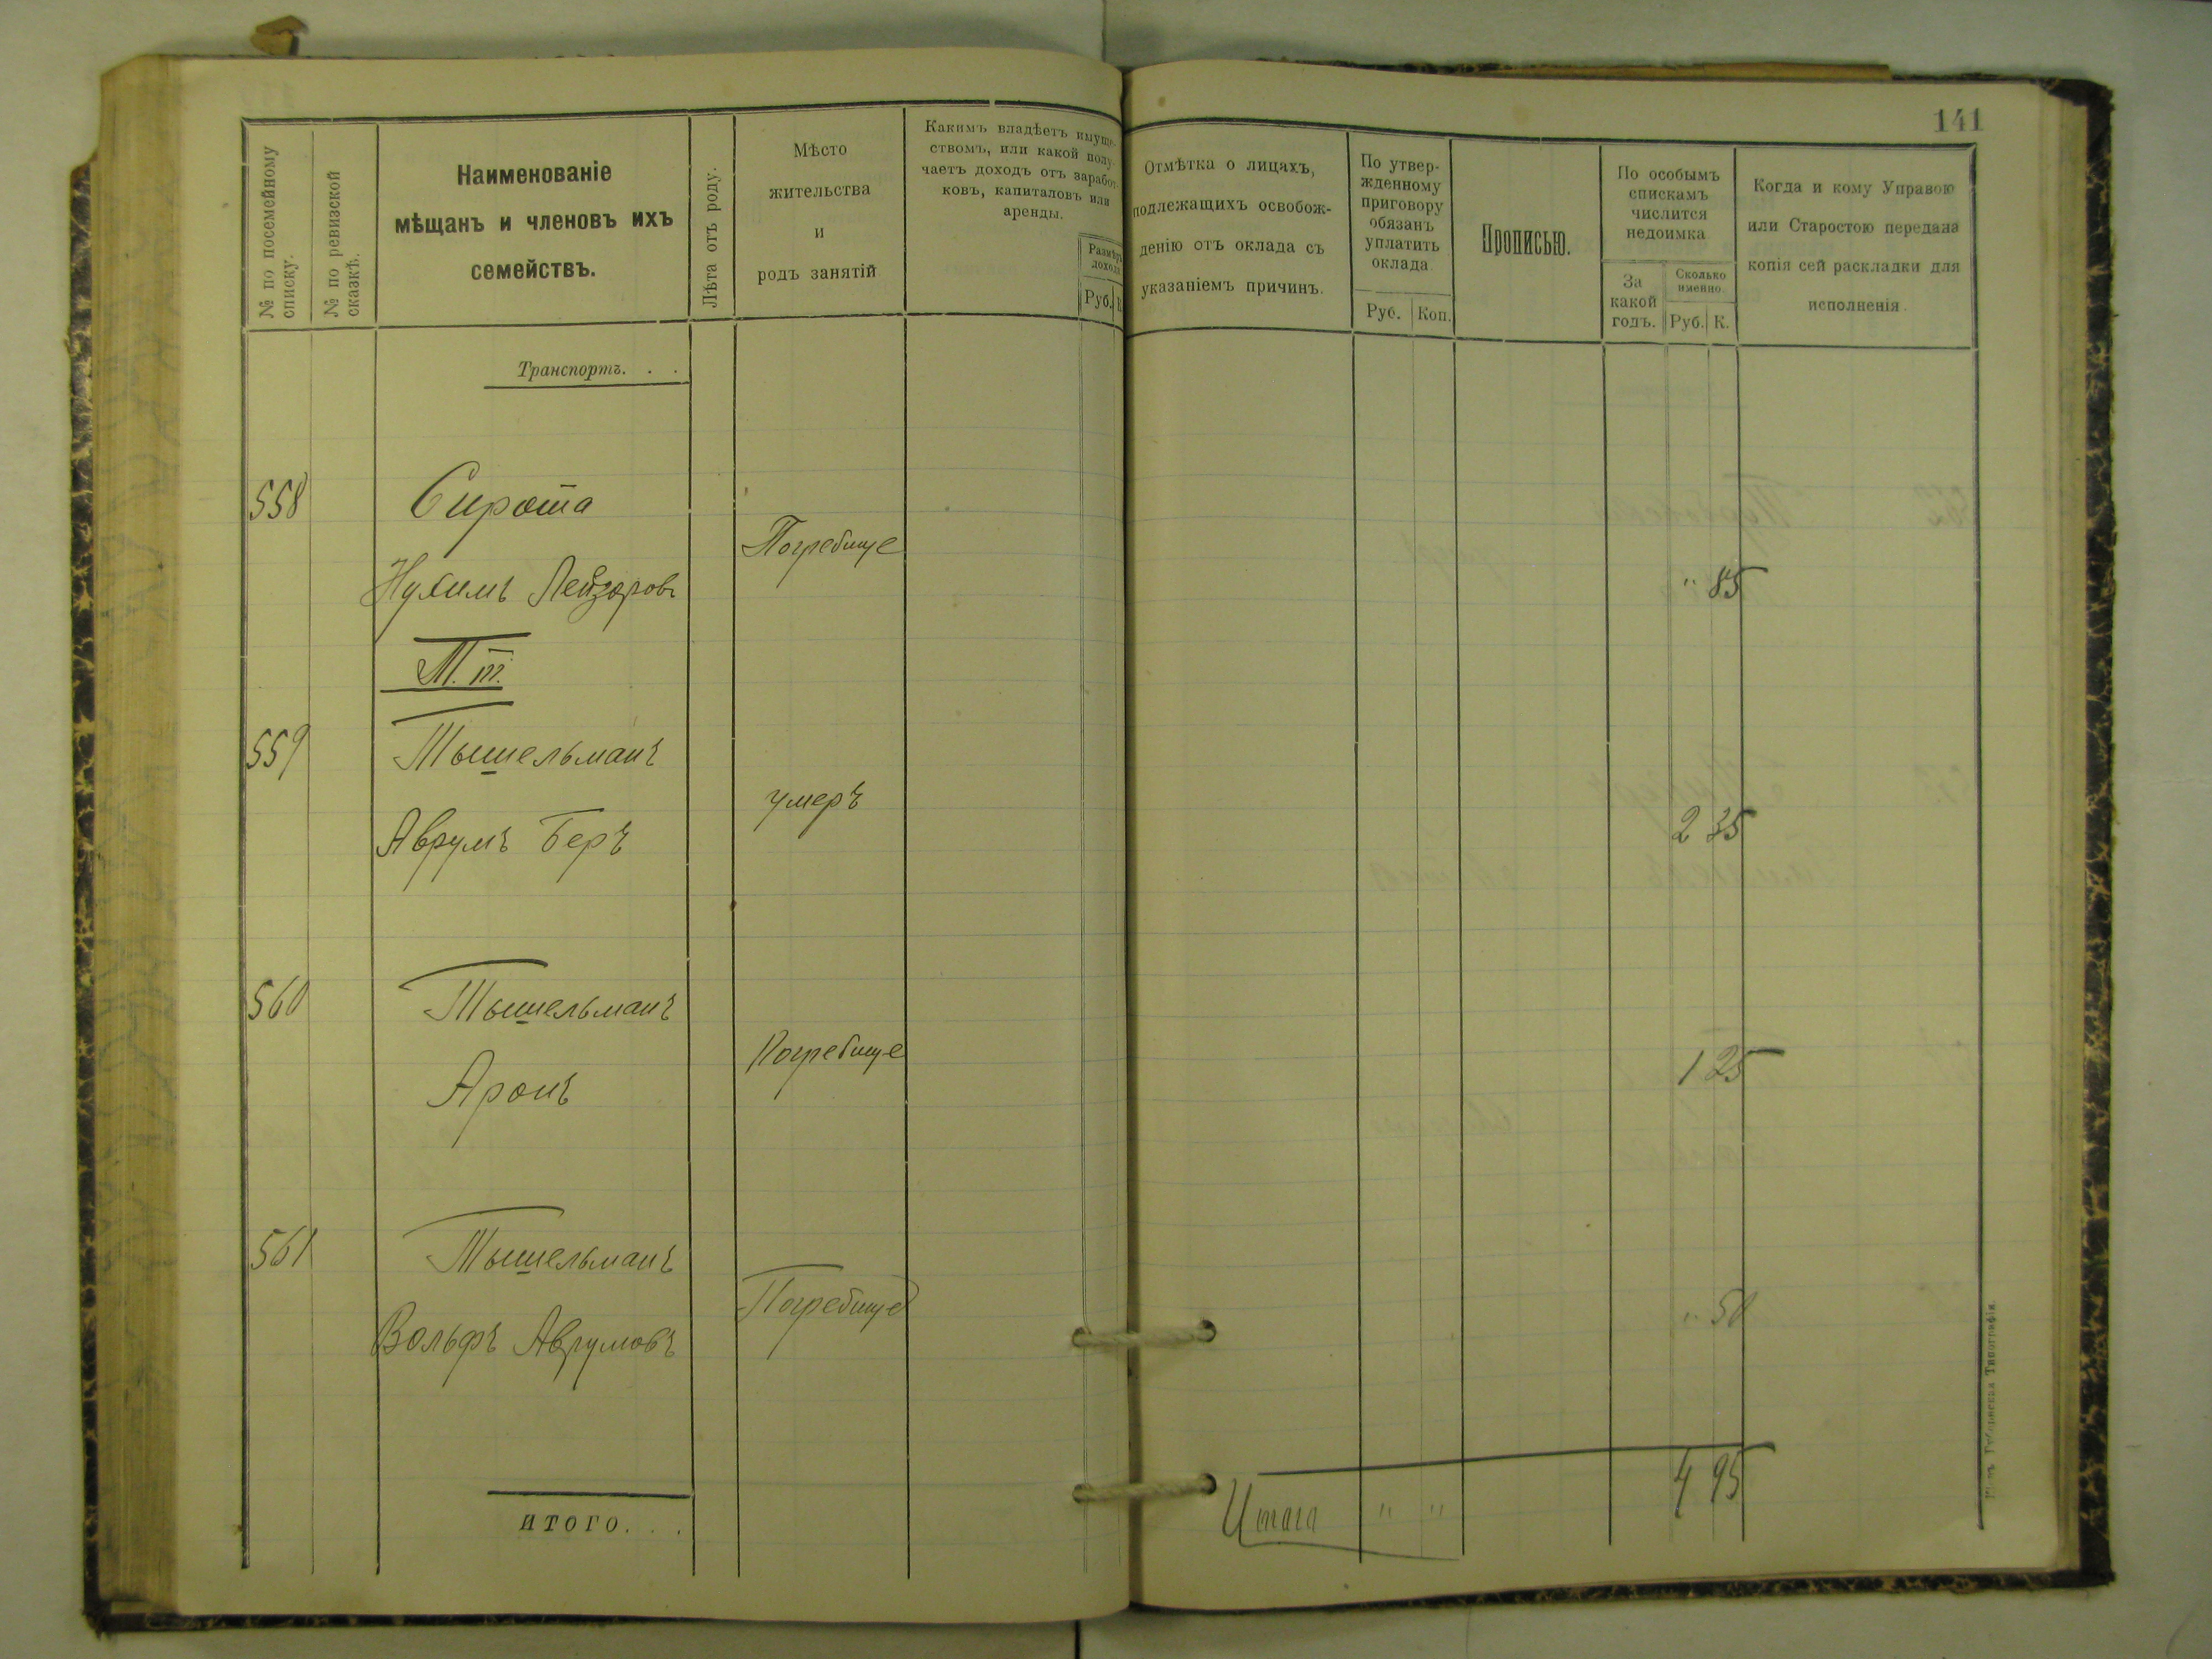 141
№ по посемейному списку.
№ по ревизской сказкѣ.
Наименованіе
мѣщанъ и членовъ ихъ
семействъ.
Лѣта отъ роду.
Мѣсто
жительства
и
родъ занятій
Какимъ владѣетъ имуще-
ствомъ, или какой полу-
чаетъ доходъ отъ заработ-
ковъ, капиталовъ или
аренды.
Размѣръ
дохода
Руб. К
Отмѣтка о лицахъ,
подлежащихъ освобож-
денію отъ оклада съ
указаніемъ причинъ.
По утвер-
жденному
приговору
обязанъ
уплатить
оклада
Руб. Коп.
Прописью.
По особымъ
спискамъ
числится
недоимка
За
какой
годъ.
Сколько
именно.
Руб. К.
Когда и кому Управою
или Старостою передана
копія сей раскладки для
исполненія.
Транспортъ. . .
558 Сирота
Погребище
Нухимъ Лейзоровъ " 85
Т. т.
559 Тышельманъ
умеръ
Аврумъ Беръ 2 35
560 Тышельманъ
Погребище 1 25
Аронъ
561 Тышельманъ
Погребище " 50
Вольфъ Аврумовъ
итого. . .
Итого " " 4 95
Типографія.